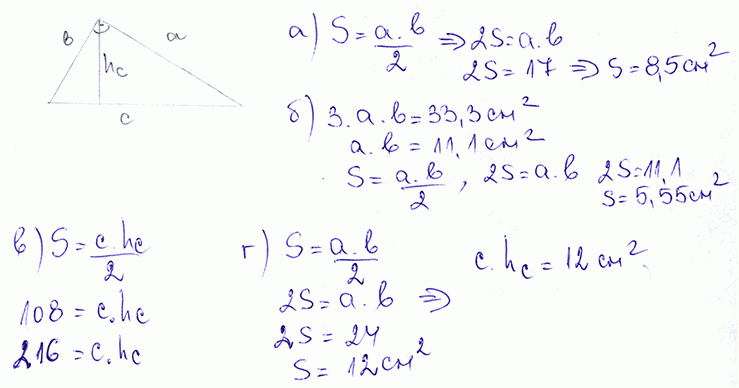 в
a
hc
c
а) S = a.в/2 ⇒ 2S = a.в
2S = 17 ⇒ S = 8,5 см²
б) 3.a.в = 33,3 см²
a.в = 11,1 см²
S = a.в/2 , 2S = a.в 2S = 11,1
S = 5,55 см²
в) S = c.hc/2
108 = c.hc
216 = c.hc
г) S = a.в/2
2S = a.в ⇒
2S = 24
S = 12 см²
c.hc = 12 см²